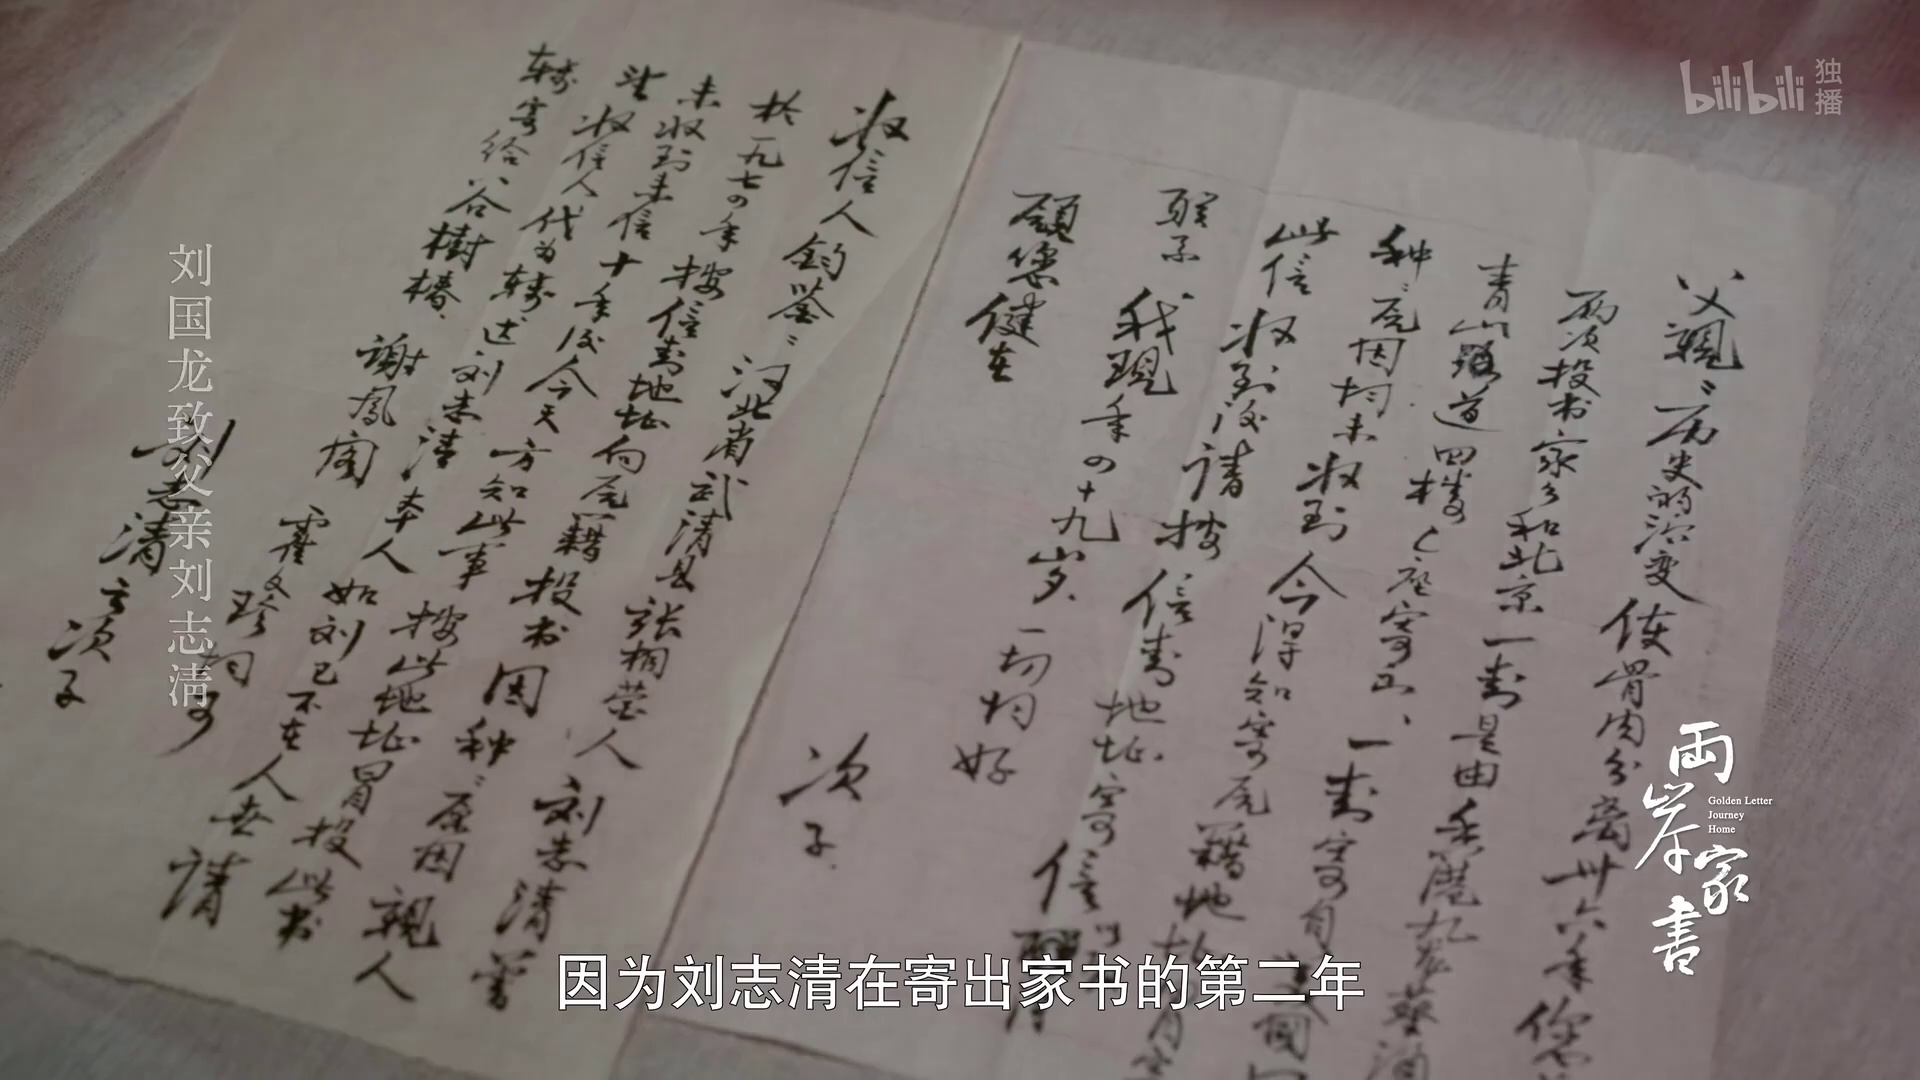 父親：历史的沿变 使骨肉分离卅六年 您
两次投书家乡和北京 一封是由香港九龙葵涌
青山道四楼C座寄出、一封寄自
种：原因均未收到 今得知寄原籍地址
此信收到后请按信封地址寄信
联系 我现年四十九岁、一切均好
願您健在
次子
收信人鈞鉴：河北省武清县張桐荃人 刘志清曾
於一九七四年按信封地址向原籍投书 因种：原因親人
未收到来信 十年后今天方知此事 按此地址冒投此书
望收信人代为转达刘志清本人 如刘已不在人世 請
转寄给谷樹椿、謝鳳阁 霍文珍均可
刘志清之次子
刘国龙致父亲刘志清
bilibili 独播
两岸家書
Golden Letter
Journey
Home
因为刘志清在寄出家书的第二年